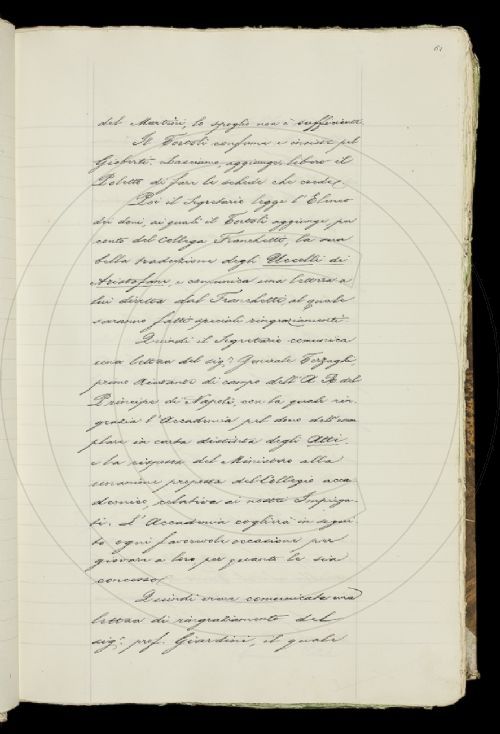 61
del Martini, lo spoglio non è sufficiente.
Il Tortoli conferma e insiste pel
Gioberti. Lasciamo, aggiunge, libero il
di fare le schede che crede.
Poi il Segretario legge l'Elenco
dei doni, ai quali il Tortoli aggiunge per
conto del Collega Franchetti, la sua
bella traduzione degli Uccelli di
Aristofane e comunica una lettera a
lui diretta dal Franchetti, al quale
saranno fatti speciali ringraziamenti.
Quindi il Segretario comunica
una lettera del sig.r Generale Terzaghi,
primo Aiutante di campo dell'A. R. del
Principe di Napoli, con la quale rin-
grazia l'Accademia pel dono dell'esem
plare in carta distinta degli Atti.
e la risposta del Ministero alla
proposta del Collegio acca
demico, relativa ai nostri Impiega-
ti. L'Accademia coglierà in segui
to ogni favorevole occasione per
giovare a loro per quanto le sia
concesso.
Quindi viene comunicata una
lettera di ringraziamento del
sig.r prof. Giardini, il quale